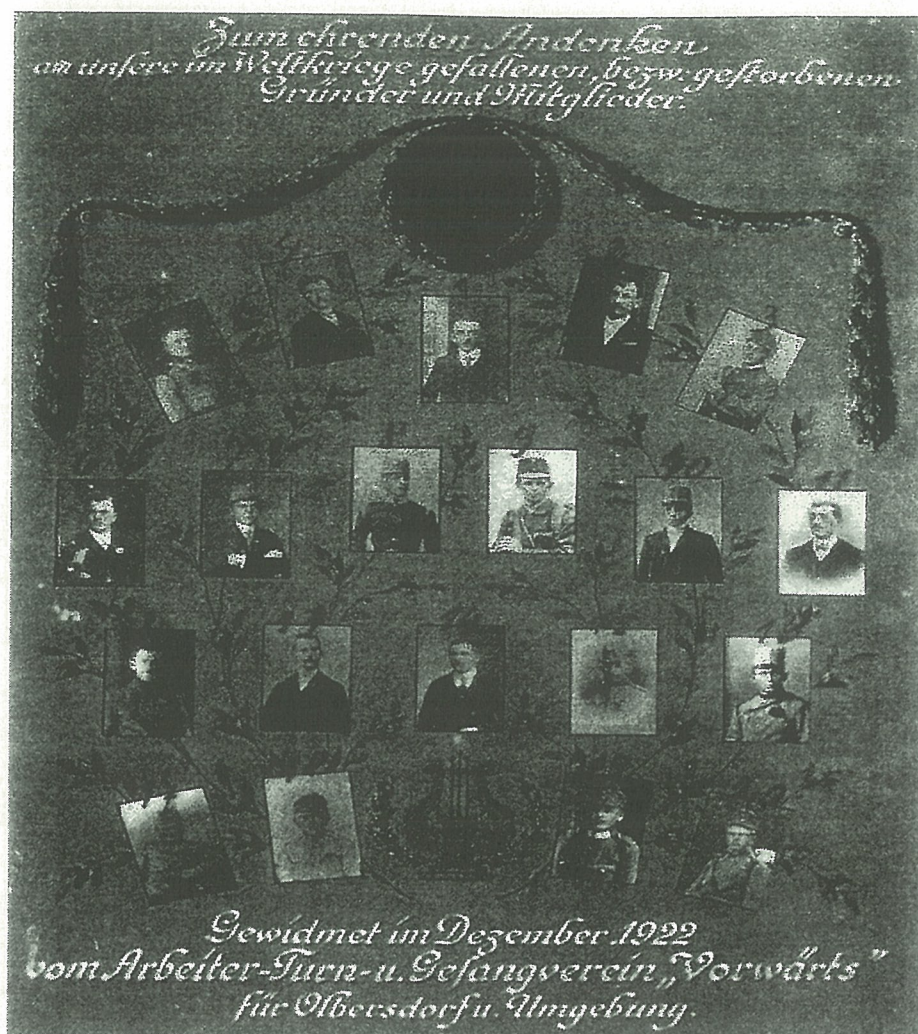 Zum ehrenden Andenken
an unsere im Weltkriege gefallenen, bezw. gestorbenen
Gründer und Mitglieder.
Gewidmet im Dezember 1922
vom Arbeiter-Turn- u. Gesangverein „Vorwärts”
für Olbersdorf u. Umgebung.